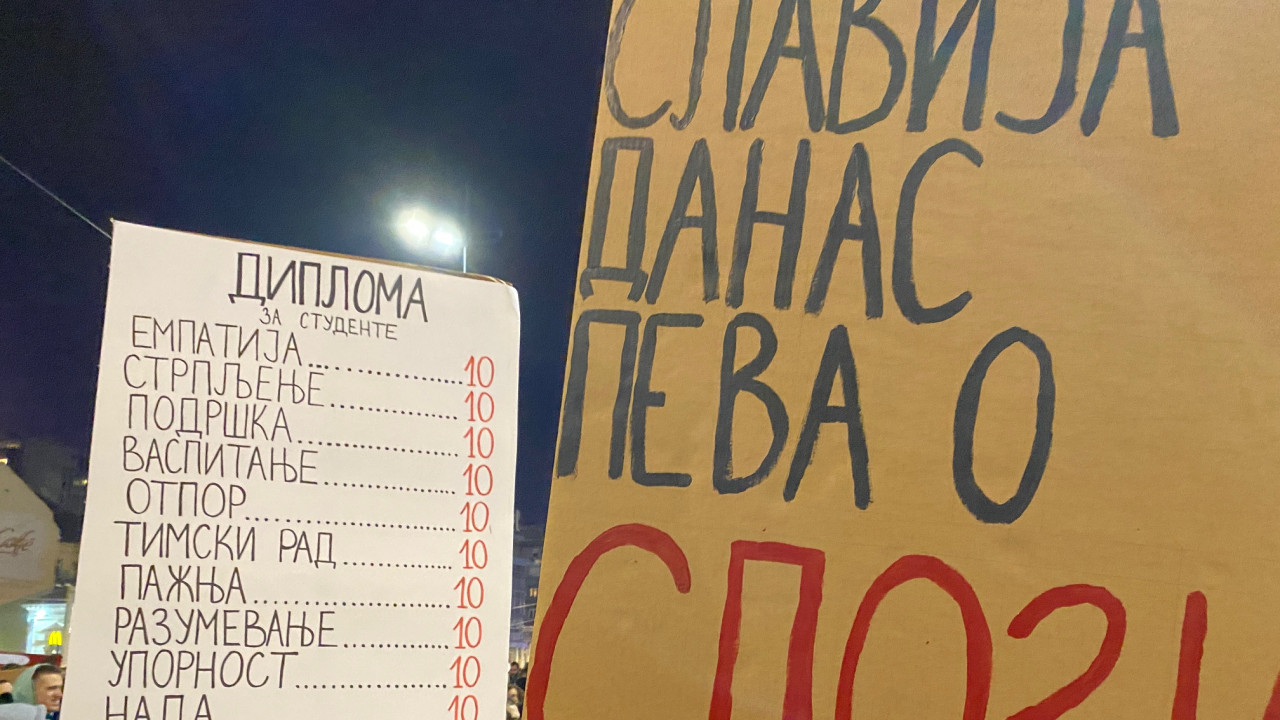 ДИПЛОМА
ЗА СТУДЕНТЕ
ЕМПАТИЈА.................10
СТРПЉЕЊЕ..............10
ПОДРШКА.................10
ВАСПИТАЊЕ..............10
ОТПОР......................10
ТИМСКИ РАД............10
ПАЖЊА....................10
РАЗУМЕВАЊЕ...........10
УПОРНОСТ................10
НАДА 10
СЛАВИЈА
ДАНАС
ПЕВА О
Café